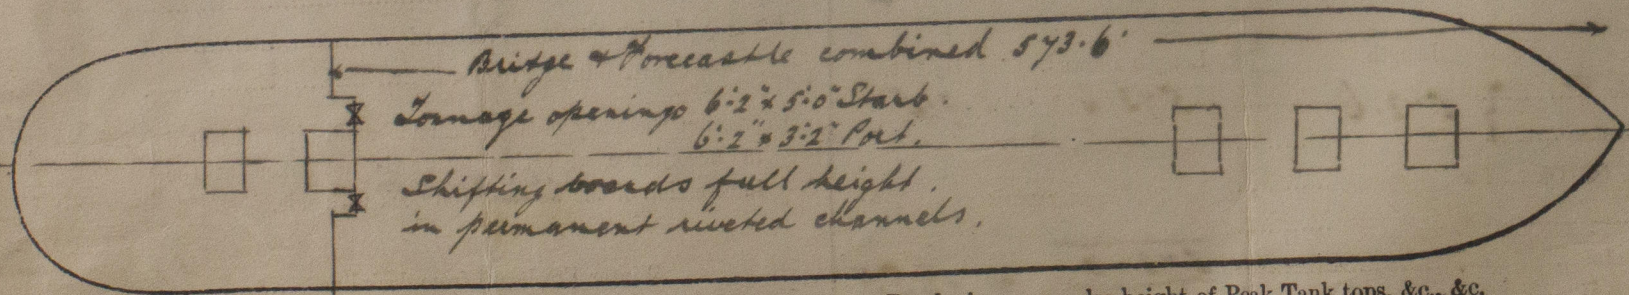 Bridge & Forecastle combined 573.6'
Tonnage openings 6'.2" x 5'.0" Starb.
6'.2" x 3'.2" Port.
Shifting boards full height.
in permanent riveted channels.
height of Peak Tank tops, &c., &c.